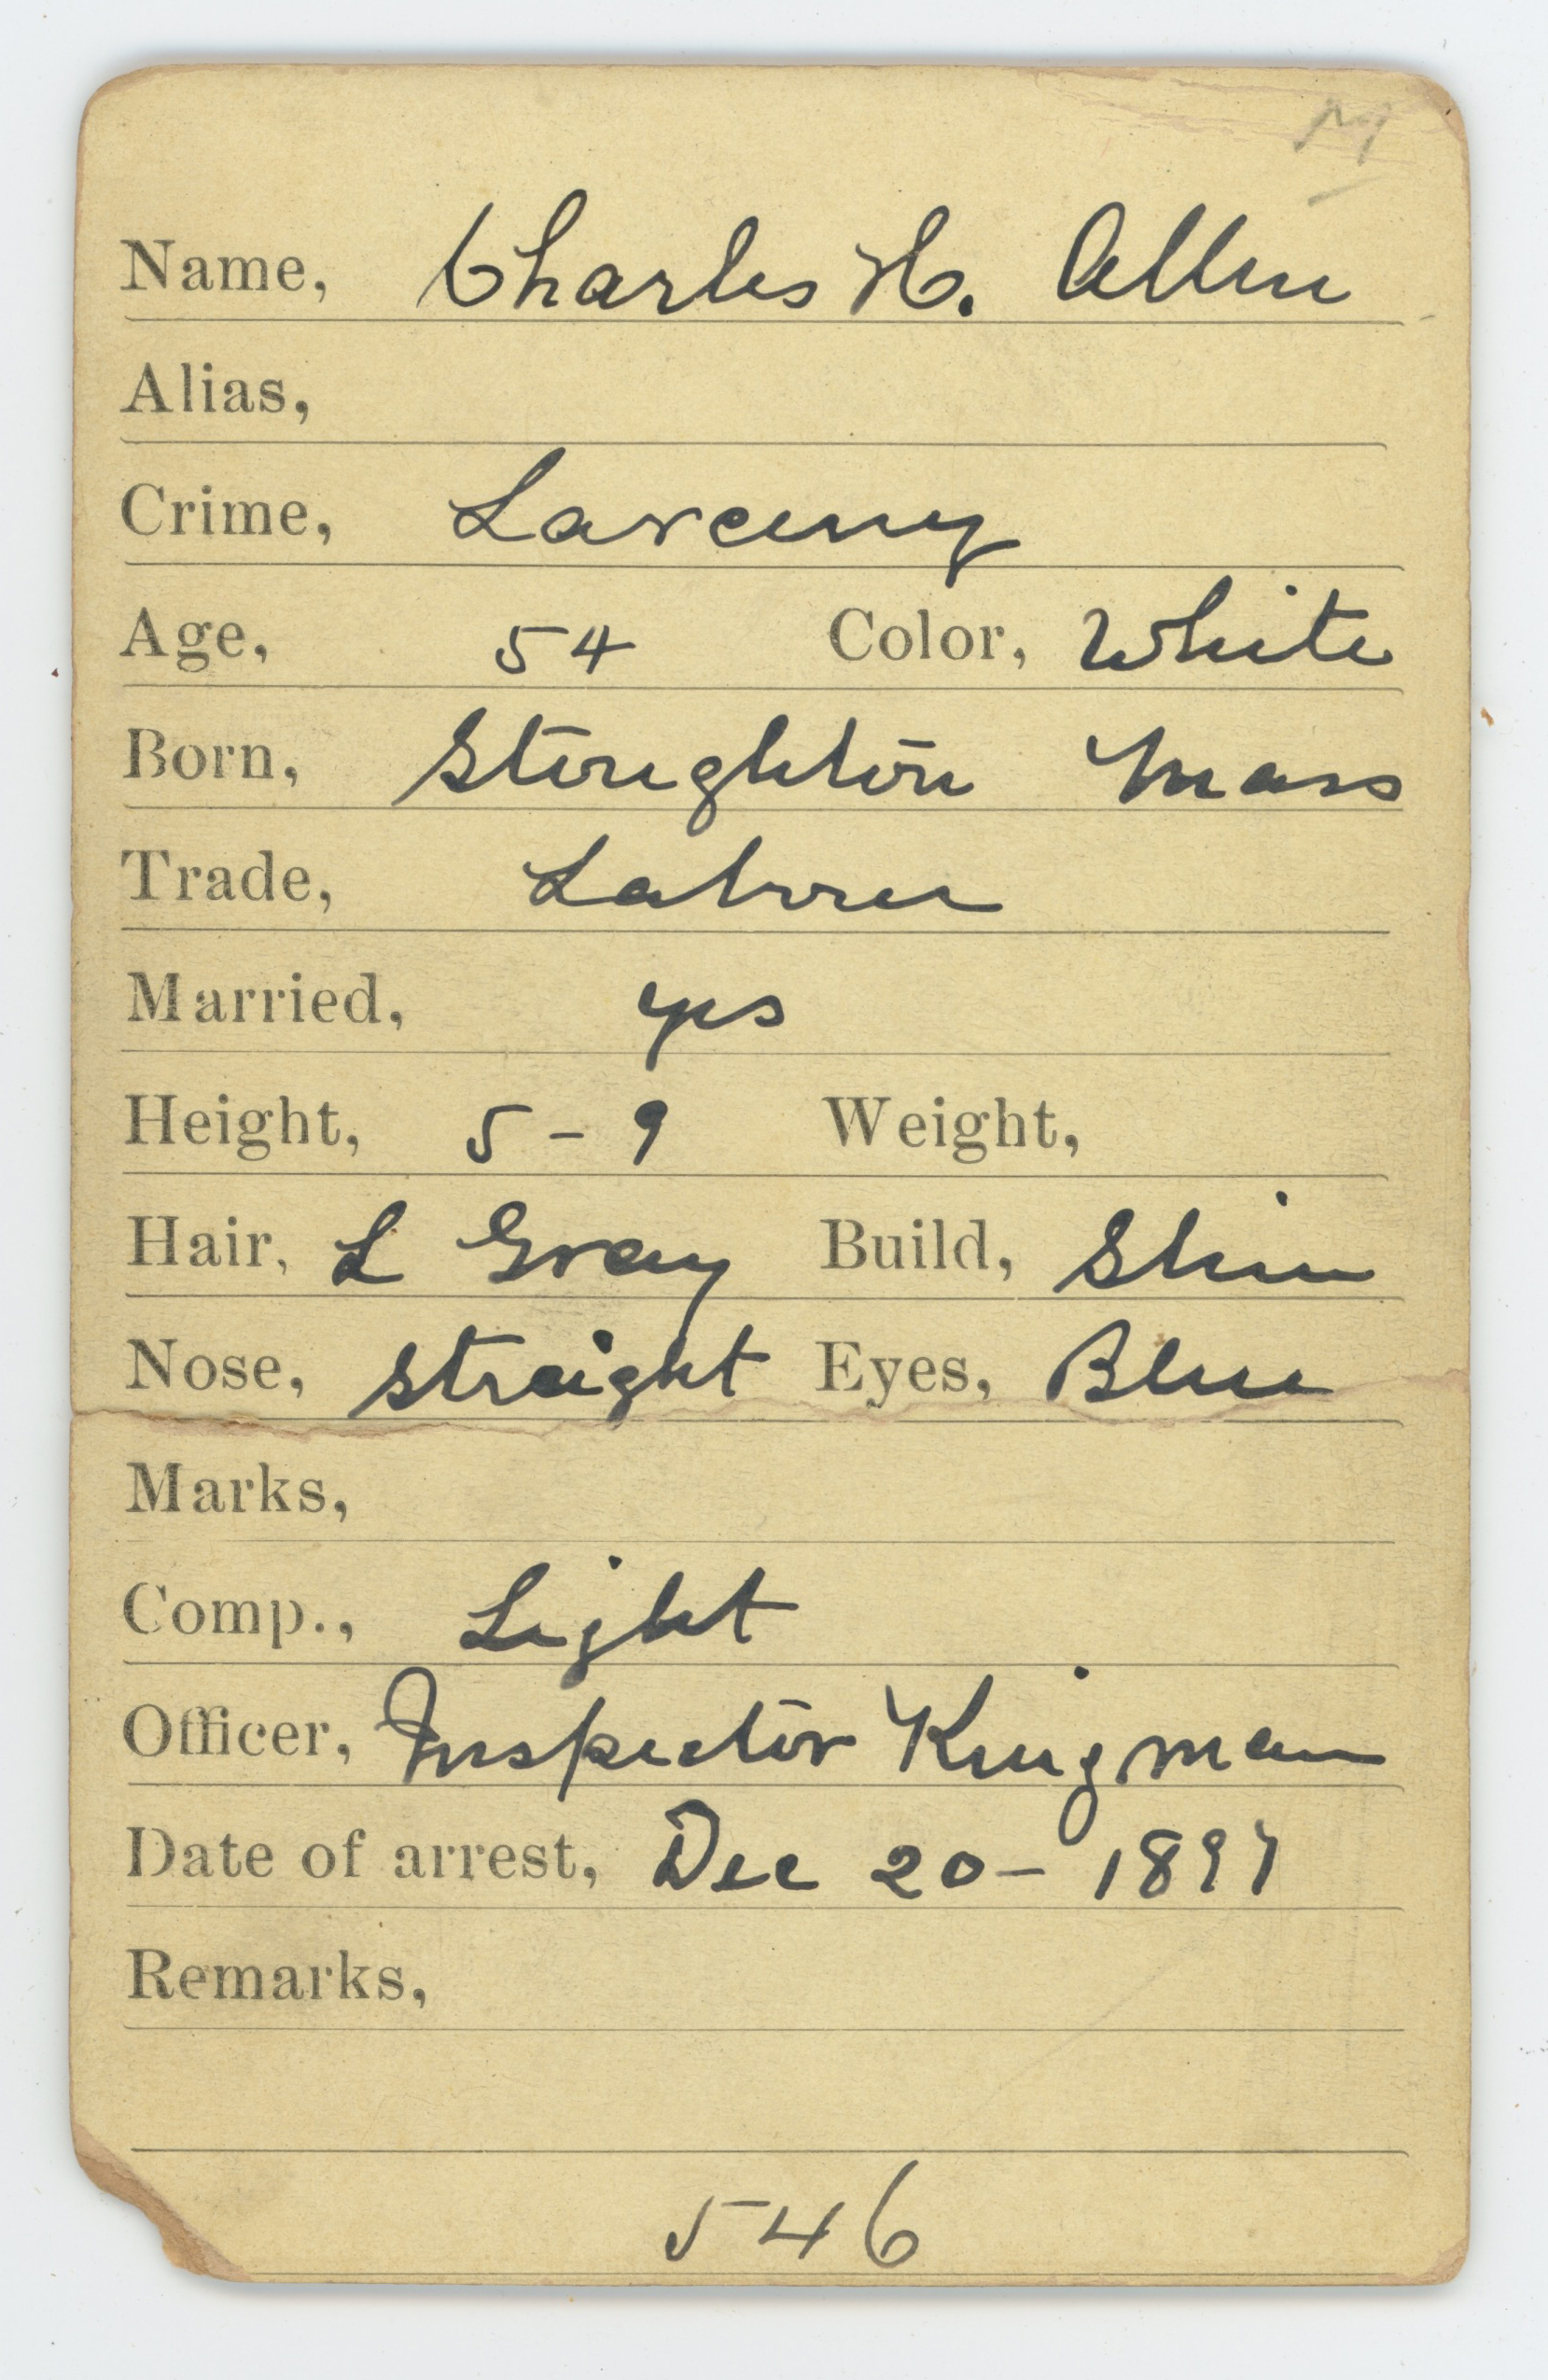 Name, Charles H. Allen
Alias,
Crime, Larceny
Age, 54 Color, White
Born, Stoughton Mass
Trade, Laborer
Married, yes
Height, 5-9 Weight,
Hair, L Gray Build, Slim
Nose, straight Eyes, Blue
Marks,
Comp., Light
Officer, Inspector Kingman
Date of arrest, Dec 20- 1897
Remarks,
546